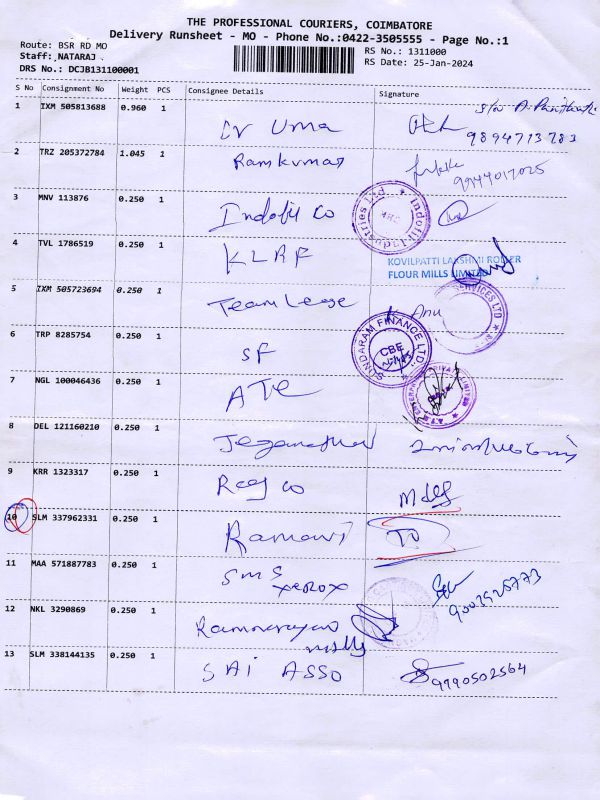 THE PROFESSIONAL COURIERS, COIMBATORE
Delivery Runsheet - MO - Phone No.:0422-3505555 - Page No.:1
Route: BSR RD MO
RS No.: 1311000
Staff: NATARAJ .
RS Date: 25-Jan-2024
DRS No.: DCJB131100001
S No Consignment No Weight PCS Consignee Details Signature
1 IXM 505813688 0.960 1 Dr Uma
9894713783
2 TRZ 205372784 1.045 1 Ramkumar
9944017025
3 MNV 113876 0.250 1 Indofil Co
4 TVL 1786519 0.250 1 KLRF
KOVILPATTI LAKSHMI ROLLER
FLOUR MILLS LIMITED
5 IXM 505723694 0.250 1 Team Lease Anu
SERVICES LTD
6 TRP 8285754 0.250 1 SF
SUNDARAM FINANCE LTD.
CBE
7 NGL 100046436 0.250 1 ATE
8 DEL 121160210 0.250 1 Jeganathan
9 KRR 1323317 0.250 1
10 SLM 337962331 0.250 1 Ramani
11 MAA 571887783 0.250 1 SMS
xerox
12 NKL 3290869 0.250 1 Ramnarayan
13 SLM 338144135 0.250 1 SAI ASSO 9790502564